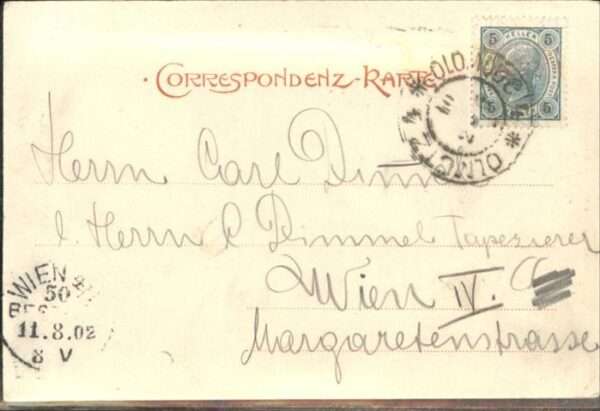 ·CORRESPONDENZ-KARTE·
5 HELLER 5
5 5
OLMÜTZ OLOMOUC
Herrn Carl
Herrn C Dimmel Tapezierer
Wien IV.
Margaretenstrasse
WIEN
50
11.8.02
8 V